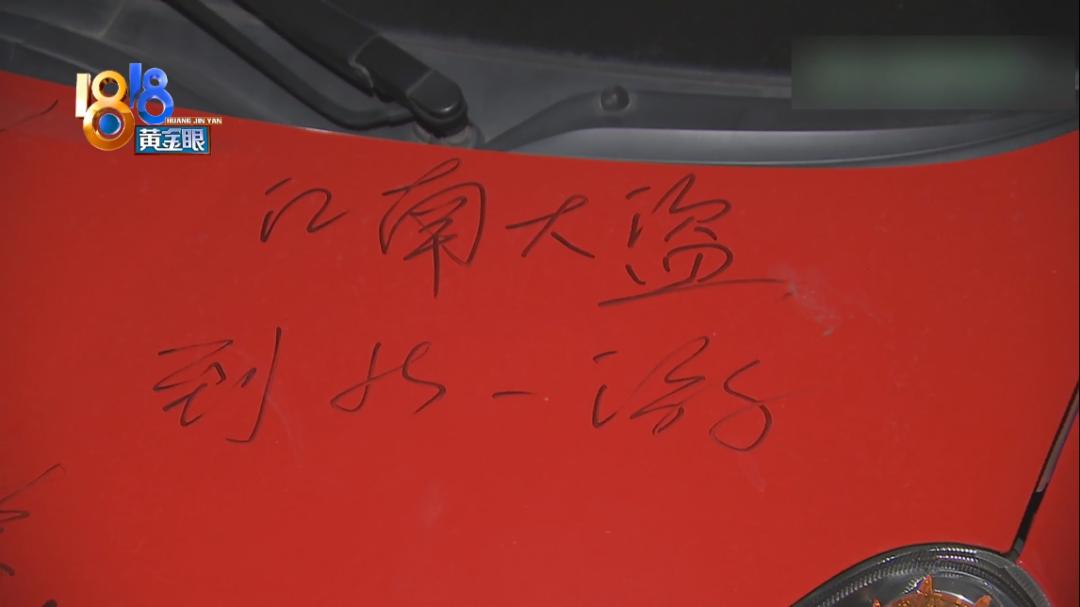 1818
HUANG JIN YAN
黄金眼
江南大盗
到此一游